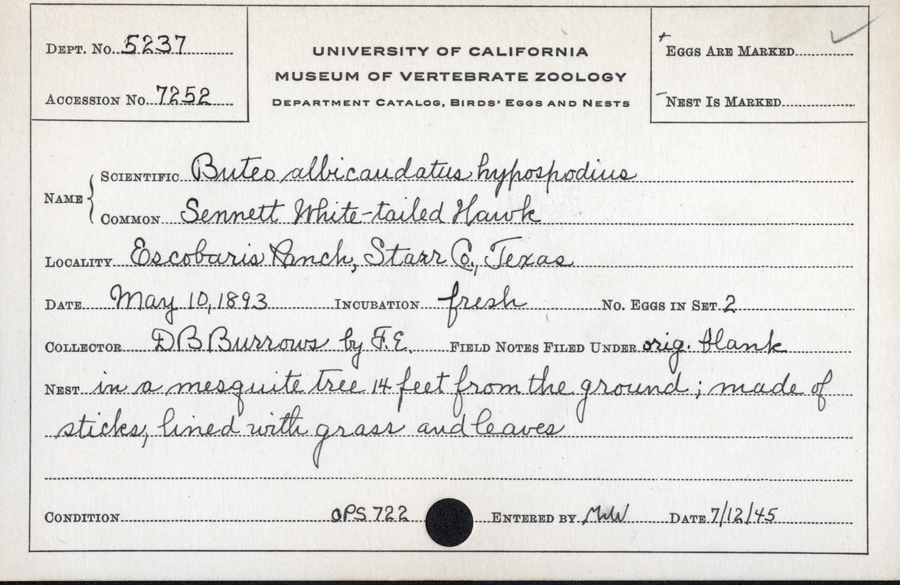 DEPT. NO. 5237
ACCESSION NO. 7252
UNIVERSITY OF CALIFORNIA
MUSEUM OF VERTEBRATE ZOOLOGY
DEPARTMENT CATALOG, BIRDS' EGGS AND NESTS
+ EGGS ARE MARKED ✓
- NEST IS MARKED
NAME { SCIENTIFIC Buteo albicaudatus hypospodius
COMMON Sennett White-tailed Hawk
LOCALITY Escobaris Ranch, Starr Co., Texas
DATE May 10, 1893 INCUBATION fresh NO. EGGS IN SET 2
COLLECTOR DB Burrows by F.E. FIELD NOTES FILED UNDER orig. blank
NEST in a mesquite tree 14 feet from the ground; made of
sticks, lined with grass and leaves
CONDITION OPS 722 ENTERED BY MWW DATE 7/12/45